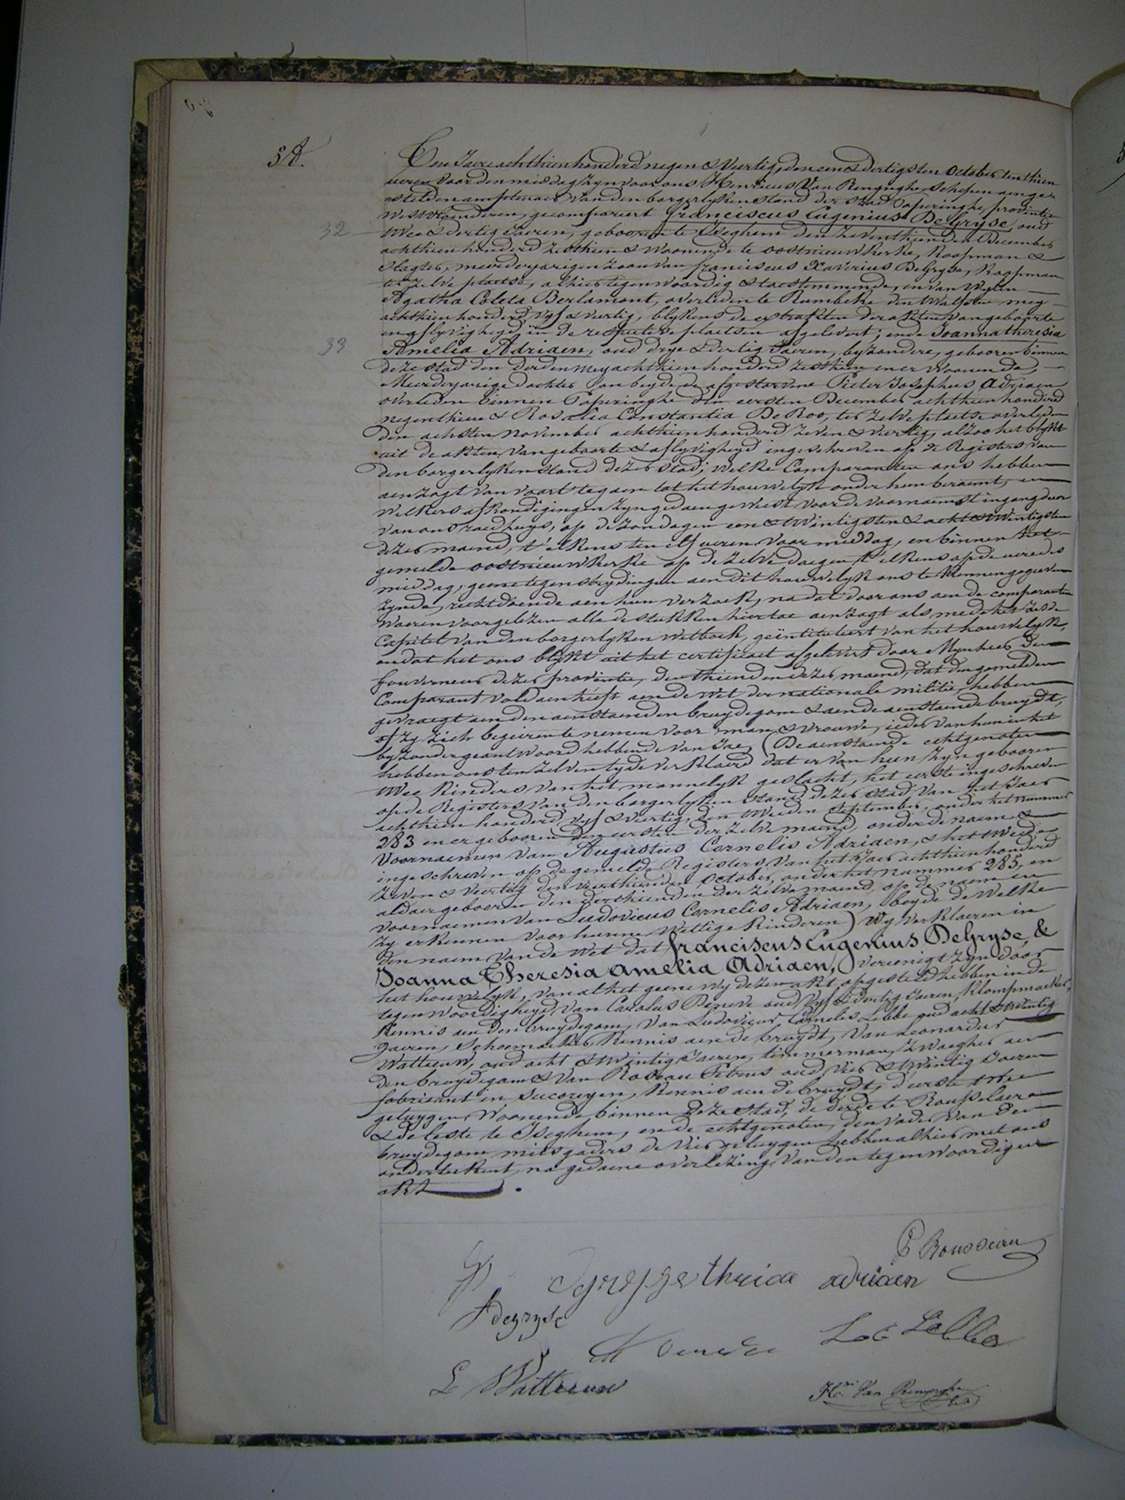 54.
Ten Jaere achthienhonderd negen & Veertig, den een & dertigsten October, ten thien
ueren voor den middag zyn voor ons Henricus Van Renynghe, Schepen aenge-
stelden amptenaer van den borgerlyken stand der stad Poperinghe, provintie
Westvlaenderen, gecompareert Franciscus Eugenius DeGryse, oud
32
twee & dertig Jaeren, gebooren te Iseghem den zeventhienden December
achthienhonderd zesthien & woonende te oostnieuwkerke, Koopman &
Slagter, meerderjarigen zoon van Franciscus Xaverius DeGryse, Koopman
ter zelve plaetse, alhier tegenwoordig & toestemmende, en van wylen
Agatha Coleta Berlamont, overleden te Rumbeke den twelfsten mey
achthien honderd vyf & veertig, blykens de extrakten der akten van geboorte
en aflyvigheyd in de respective plaetsen afgelevert; ende Joanna theresia
33
Amelia Adriaen, oud drye & dertig Jaeren, byzondere, gebooren binnen
deze stad den derden mey achthien honderd zesthien en er woonende,
Meerderjarige dochter van beyde de afgestorvene Pieter Josephus Adriaen
overleden binnen Poperinghe den eersten December achthienhonderd
negenthien & Rosalia Constantia De Roo, ter zelve plaetse overleden
den achsten November achthien honderd zeven & veertig, alzoo het blykt
uit de akten van geboorte & aflyvigheyd ingeschreven op de Registers van
den borgerlyken stand dezer stad; welke Comparanten ons hebben
aenzogt van voorts tegaen tot het houwelyk onder hun beraemt, en
welkers afkondigingen zyn gedaen geweest voor de voornaemste ingangdeur
van ons raedhuys, op de zondagen een & twintigsten & acht & twintigsten
dezer maend, t'elkens ten elf ueren voor middag, en binnen het
gemelde oostnieuwkerke op de zelve daegen t'elkens op de ure des
middag, geene tegenstrydingen aen dit houwelyk ons te kennen gegeven
zynde, recht doende aen hun verzoek, na dat door ons aen de comparanten
waeren voorgelezen alle de stukken hiertoe aenzogt als mede het zesde
Capitel van den borgerlyken Wetboek, geïntituleert van het houwelyk,
en dat het ons blykt uit het certificaet afgelevert door Mynheer den
Gouverneur dezer provintie, den thienden dezer maend, dat den gemelden
Comparant voldaen heeft aen de wet der nationale militie, hebben
gevraegt aen den aenstaenden bruydegom & aen de aenstaende bruydt,
of zy zich begeiren te nemen voor man & vrouwe, ieder van hun in het
byzonder geantwoord hebbende van Jae, (De aenstaende echtgenoten
hebben ons ten zelven tyde verklaerd dat er van hun zyn gebooren
twee kinders van het mannelyk geslacht, het eerste ingeschreven
op de Registers van den borgerlyken stand dezer stad van het Jaer
achthien honderd vyf & veertig, den tweeden September, onder het nummer
283 en er gebooren den eersten der zelve maend, onder de naem &
voornaemen van Augustus Cornelis Adriaen, & het tweede
ingeschreven op de gemelde Registers van het Jaer achthien honderd
zeven & veertig den veerthienden October, onder het nummer 285, en
aldaer gebooren den derthienden der zelve maend, op de naem en
voornaemen van Ludovicus Cornelis Adriaen, beyde de welke
zy erkennen voor hunne wettige kinderen) Wy verklaeren in
den naem van de Wet dat Franciscus Eugenius DeGryse, &
Joanna Theresia Amelia Adriaen, vereenigt zyn door
het houwelyk, van al het geene wy dezen akt opgesteld hebben in de
tegenwoordigheyd van Carolus Deneve oud vyf & dertig Jaeren, Klompmaeker,
kennis aen den bruydegom, van Ludovicus Cornelis Lebbe oud acht & twintig
Jaeren, Schoenmaeker kennis aen de bruydt, van Leonardus
Watteeuw, oud acht & twintig Jaeren, timmerman, zwaegher aen
den bruydegom & van Petrus oud vier & twintig Jaeren
fabricant in Succoreyen, kennis aen de bruydt, d'eerste twee
getuygen woonende binnen deze stad, de derde te Rousselaere
& de leste te Iseghem, en de echtgenoten, den vader van den
bruydegom, mitsgaders de vier getuygen hebben alhier met ons
onderteekent, na gedaene overlezing van den tegenwoordigen
akt.
thresia adriaen
degryse
Lebbe
L Watteeuw
Hri Van Renynghe